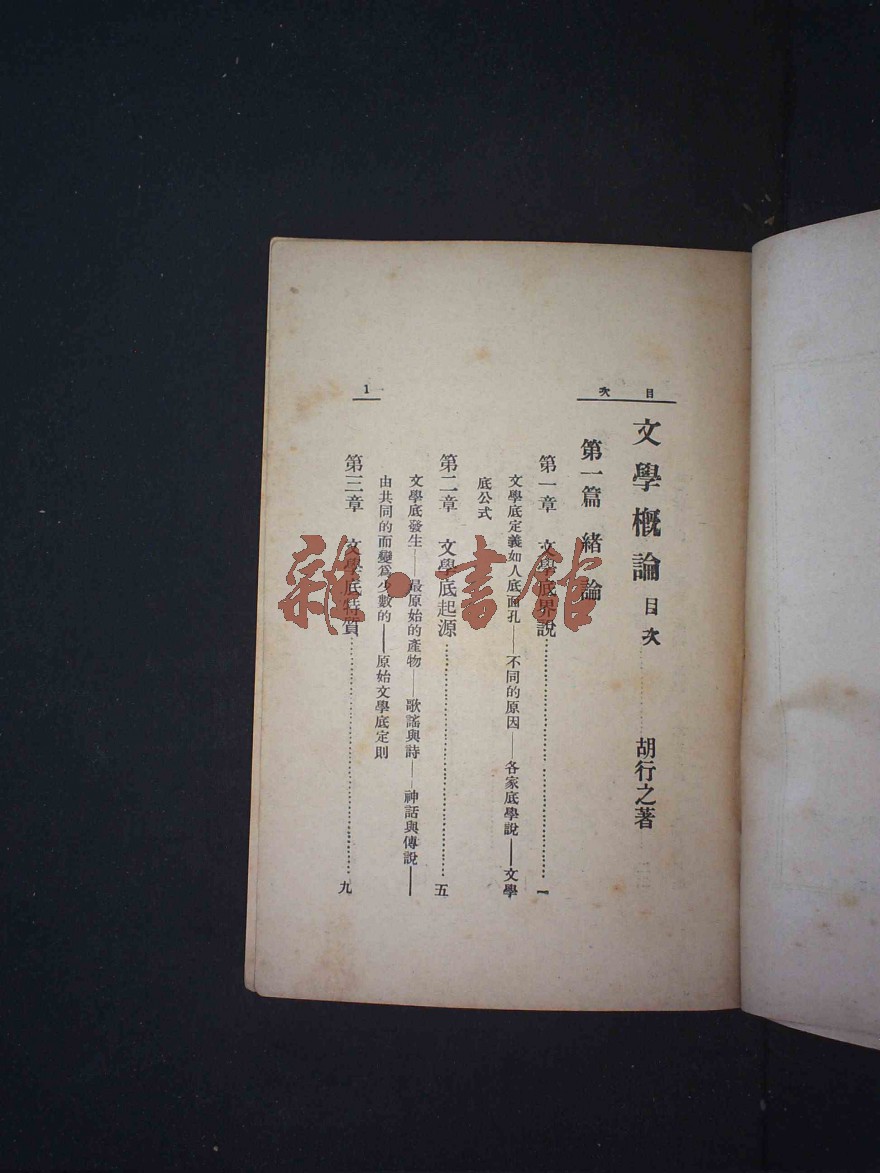 目次
文學概論 目次 胡行之著
第一篇 緒論
第一章 文學底界說……一
文學底定義如人底面孔——不同的原因——各家底學說——文學
底公式
第二章 文學底起源……五
文學底發生——最原始的產物——歌謠與詩——神話與傳說——
由共同的而變爲少數的——原始文學底定則
第三章 文學底特質……九
1
雜·書館